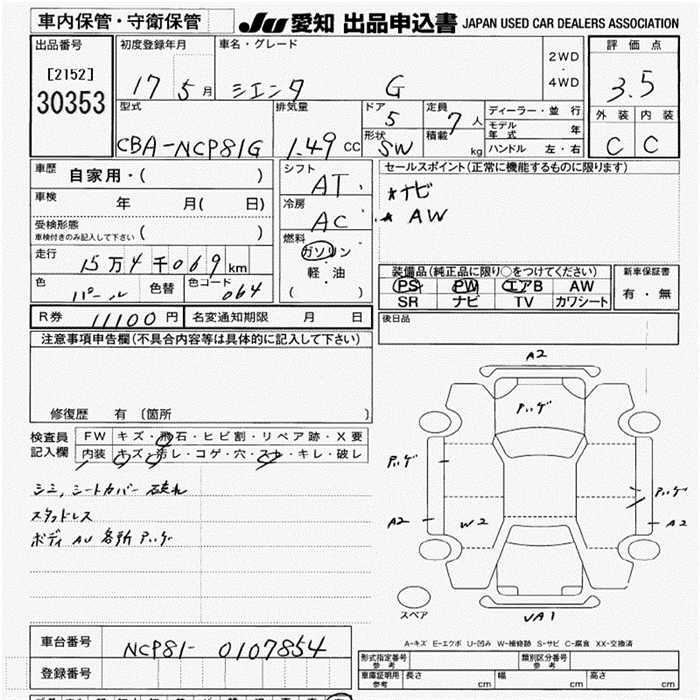 車内保管・守衛保管
JU 愛知 出品申込書 JAPAN USED CAR DEALERS ASSOCIATION
出品番号
[2152]
30353
初度登録年月
17 5 月
車名・グレード
シエンタ G
2WD
・
4WD
評価点
3.5
外装 内装
C C
型式
CBA-NCP81G
排気量
1.49 CC
ドア
5
形状
SW
定員
7 人
積載
kg
ディーラー・並行
モデル年式 年
ハンドル 左・右
車歴
自家用・( )
車検
年 月( 日)
受検形態
車検付きのみ記入して下さい ( )
走行
15万4千069km
色
パール
色替
色コード
064
シフト
AT
冷房
AC
燃料
ガソリン
・
軽・油
( )
セールスポイント(正常に機能するものに限ります)
★ナビ
★AW
装備品(純正品に限り○をつけてください)
PS PW エアB AW
SR ナビ TV カワシート
新車保証書
有・無
R券 11100 円
名変通知期限 月 日
後日品
注意事項申告欄(不具合内容等は具体的に記入して下さい)
修復歴 有 〔箇所 〕
検査員
記入欄
FW キズ・飛石・ヒビ割・リペア跡・X要
内装 キズ・汚レ・コゲ・穴・スレ・キレ・破レ
シミ,シートカバー破れ
スタッドレス
ボディ AU 各所
A2
A2
W2
A2
スペア
UA1
A-キズ E-エクボ U-凹み W-補修跡 S-サビ C-腐食 XX-交換済
車台番号
NCP81-0107854
登録番号
形式指定番号
参考
類別区分番号
参考
車庫証明用
参考
長さ cm
幅 cm
高さ cm